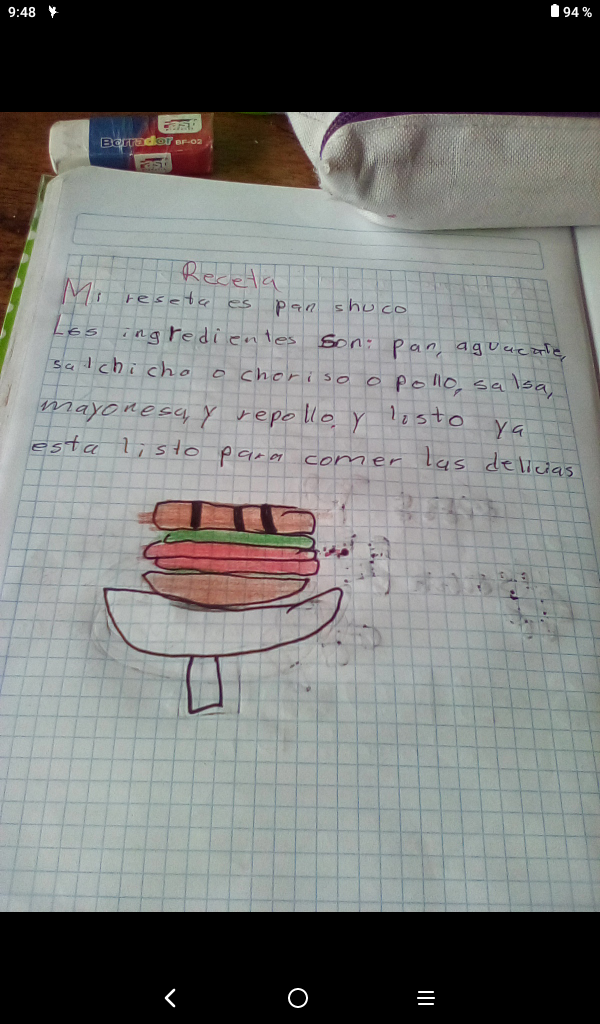 9:48
94 %
Fast
Borrador BF-02
Fast
Receta
Mi reseta es pan shuco
Los ingredientes son: pan, aguacate,
salchicha o choriso o pollo, salsa,
mayonesa, y repollo. y listo ya
esta listo para comer las delicias